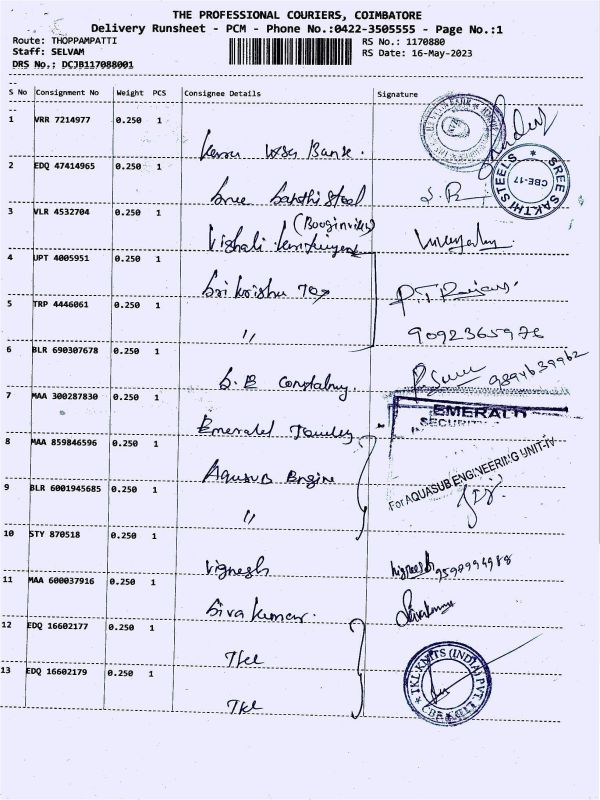 THE PROFESSIONAL COURIERS, COIMBATORE
Delivery Runsheet - PCM - Phone No.:0422-3505555 - Page No.:1
Route: THOPPAMPATTI RS No.: 1170880
Staff: SELVAM RS Date: 16-May-2023
DRS No.: DCJB117088001
S No Consignment No Weight PCS Consignee Details Signature
1 VRR 7214977 0.250 1
Bank.
2 EDQ 47414965 0.250 1
Sree Sakthi Steel
SREE SAKTHI STEELS
CBE-17
3 VLR 4532704 0.250 1
Vishali
4 UPT 4005951 0.250 1
Sri Krishna
5 TRP 4446061 0.250 1
〃
9092365976
6 BLR 690307678 0.250 1
9894639962
7 MAA 300287830 0.250 1
Emerald
EMERALD
SECURITY
8 MAA 859846596 0.250 1
Aqusub Engine
For AQUASUB ENGINEERING UNIT-IV
9 BLR 6001945685 0.250 1
〃
10 STY 870518 0.250 1
Vignesh
Vignesh
11 MAA 600037916 0.250 1
Siva kumar.
Sivakumar
12 EDQ 16602177 0.250 1
TKL
TKL KNITS (INDIA) PVT.
13 EDQ 16602179 0.250 1
TKL